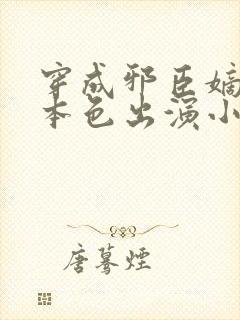 穿成邪臣嫡
本色出演小
唐蓦煙